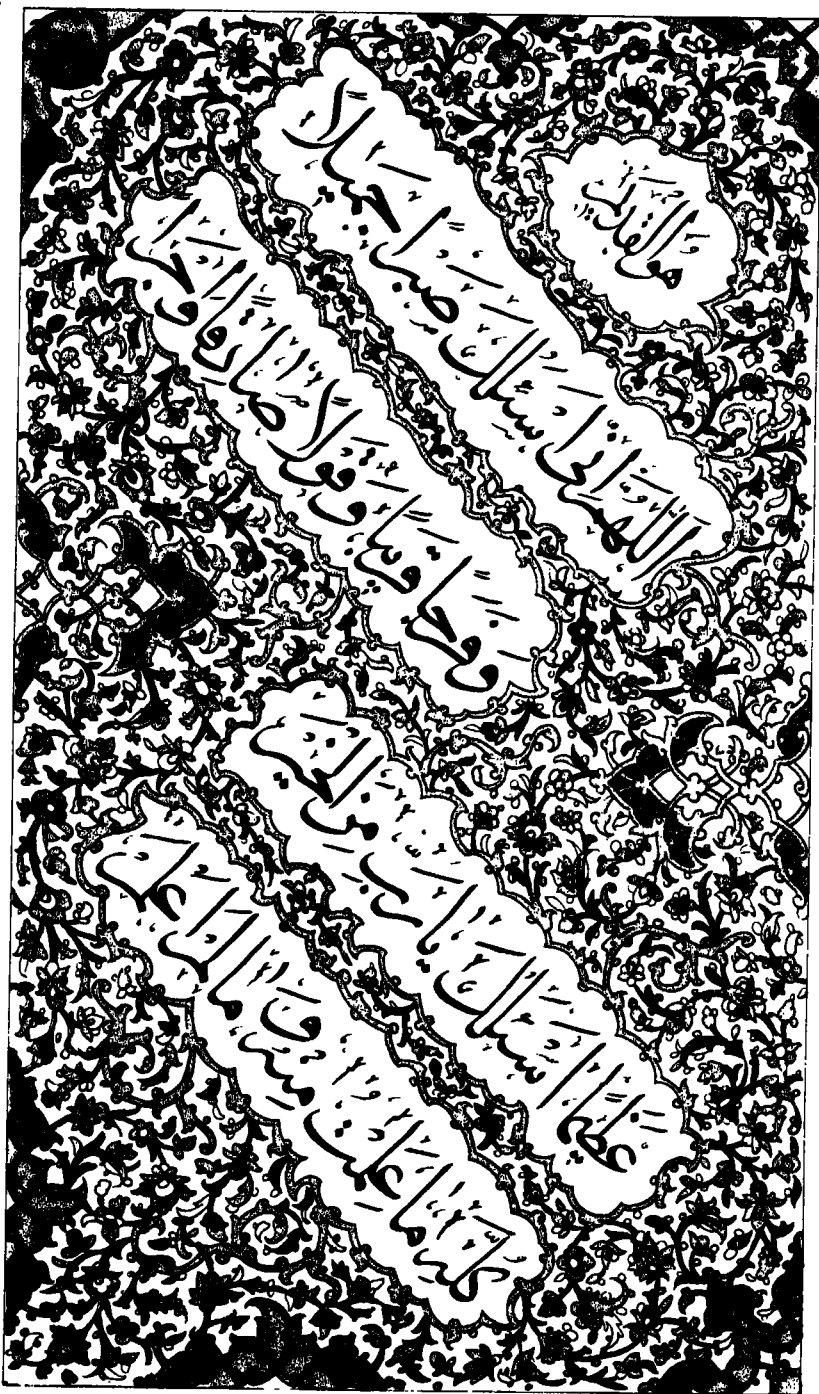 هو القدیر
اللَّهُمَّ إِنِّي أَسْئَلُكَ صَبْرًا جَمِيلًا
وَفَرَجًا قَرِيبًا وَقَوْلًا صَادِقًا وَأَجْرًا
عَظِيمًا أَسْئَلُكَ يَا رَبِّ مِنَ الْخَيْرِ
كُلِّهِ مَا عَلِمْتُ مِنْهُ وَمَا لَمْ أَعْلَمْ